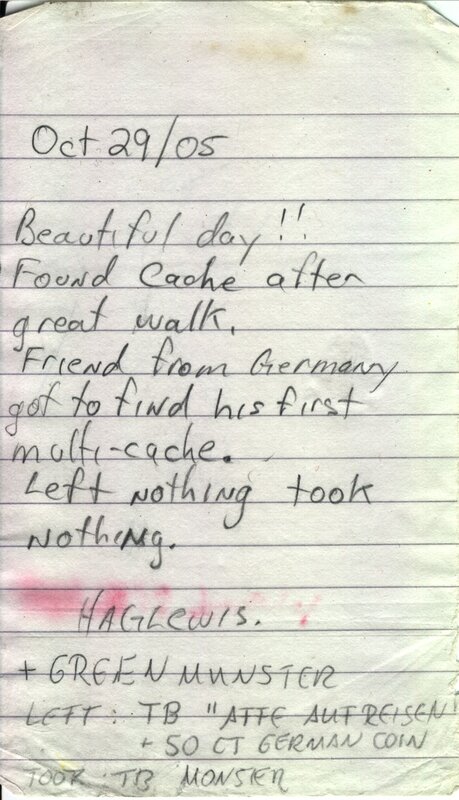 Oct 29/05
Beautiful day!!
Found Cache after
great walk.
Friend from Germany
got to find his first
multi-cache.
Left nothing took
nothing.
HAGLEWIS.
+ GREEN MUNSTER
LEFT: TB "AFFE AUF REISEN"
+ 50 CT GERMAN COIN
TOOK TB MONSTER